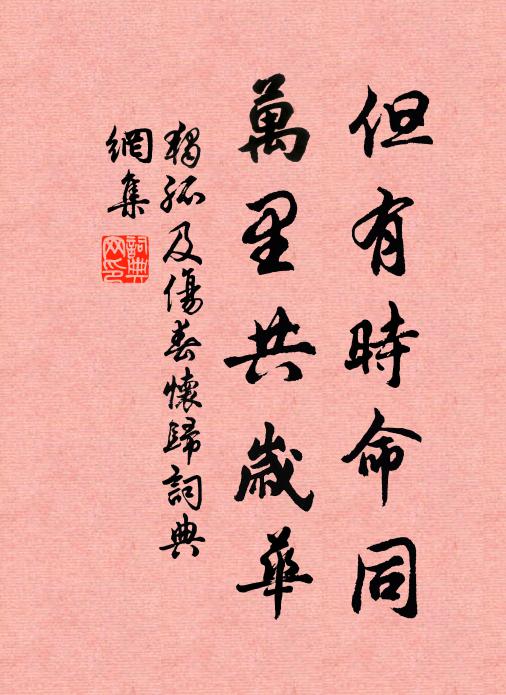 但有時命同
萬里共歲華
獨孤及傷春懷歸詞典
網集
詞典網印